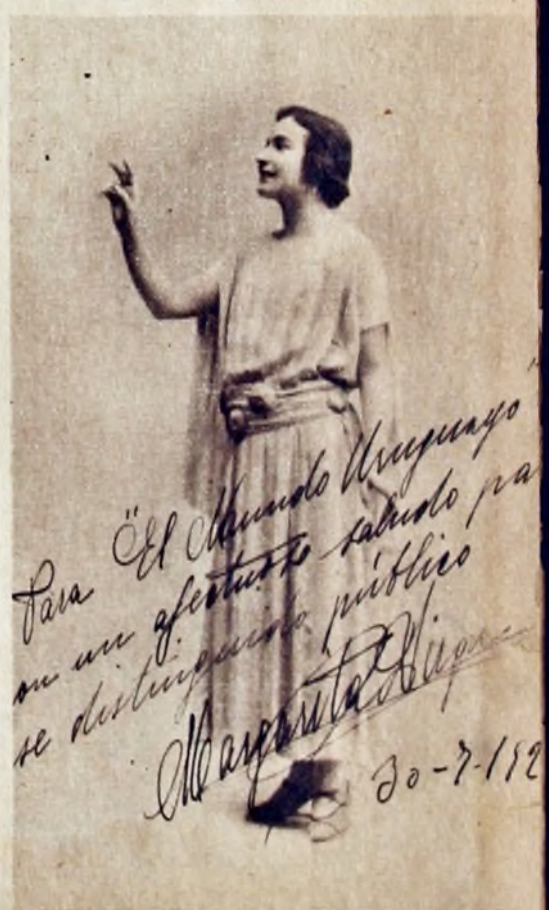 Para "El Mundo Uruguayo"
on un afectuoso saludo pa
se distinguido público
Margarita Xirgu
30-7-192